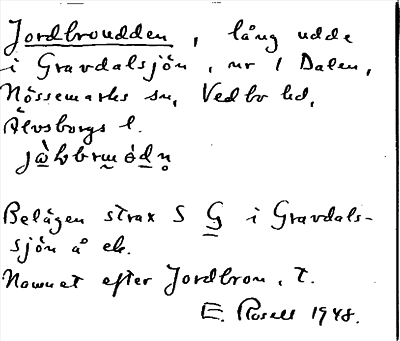 Jordbroudden, lång udde
i Gravdalsjön, nr 1 Dalen,
Nössemarks sn, Vedbo hd,
Älvsborgs l.
Belägen strax S G i Gravdals-
sjön å ek.
Namnet efter Jordbron, T.
E. Rosell 1948.